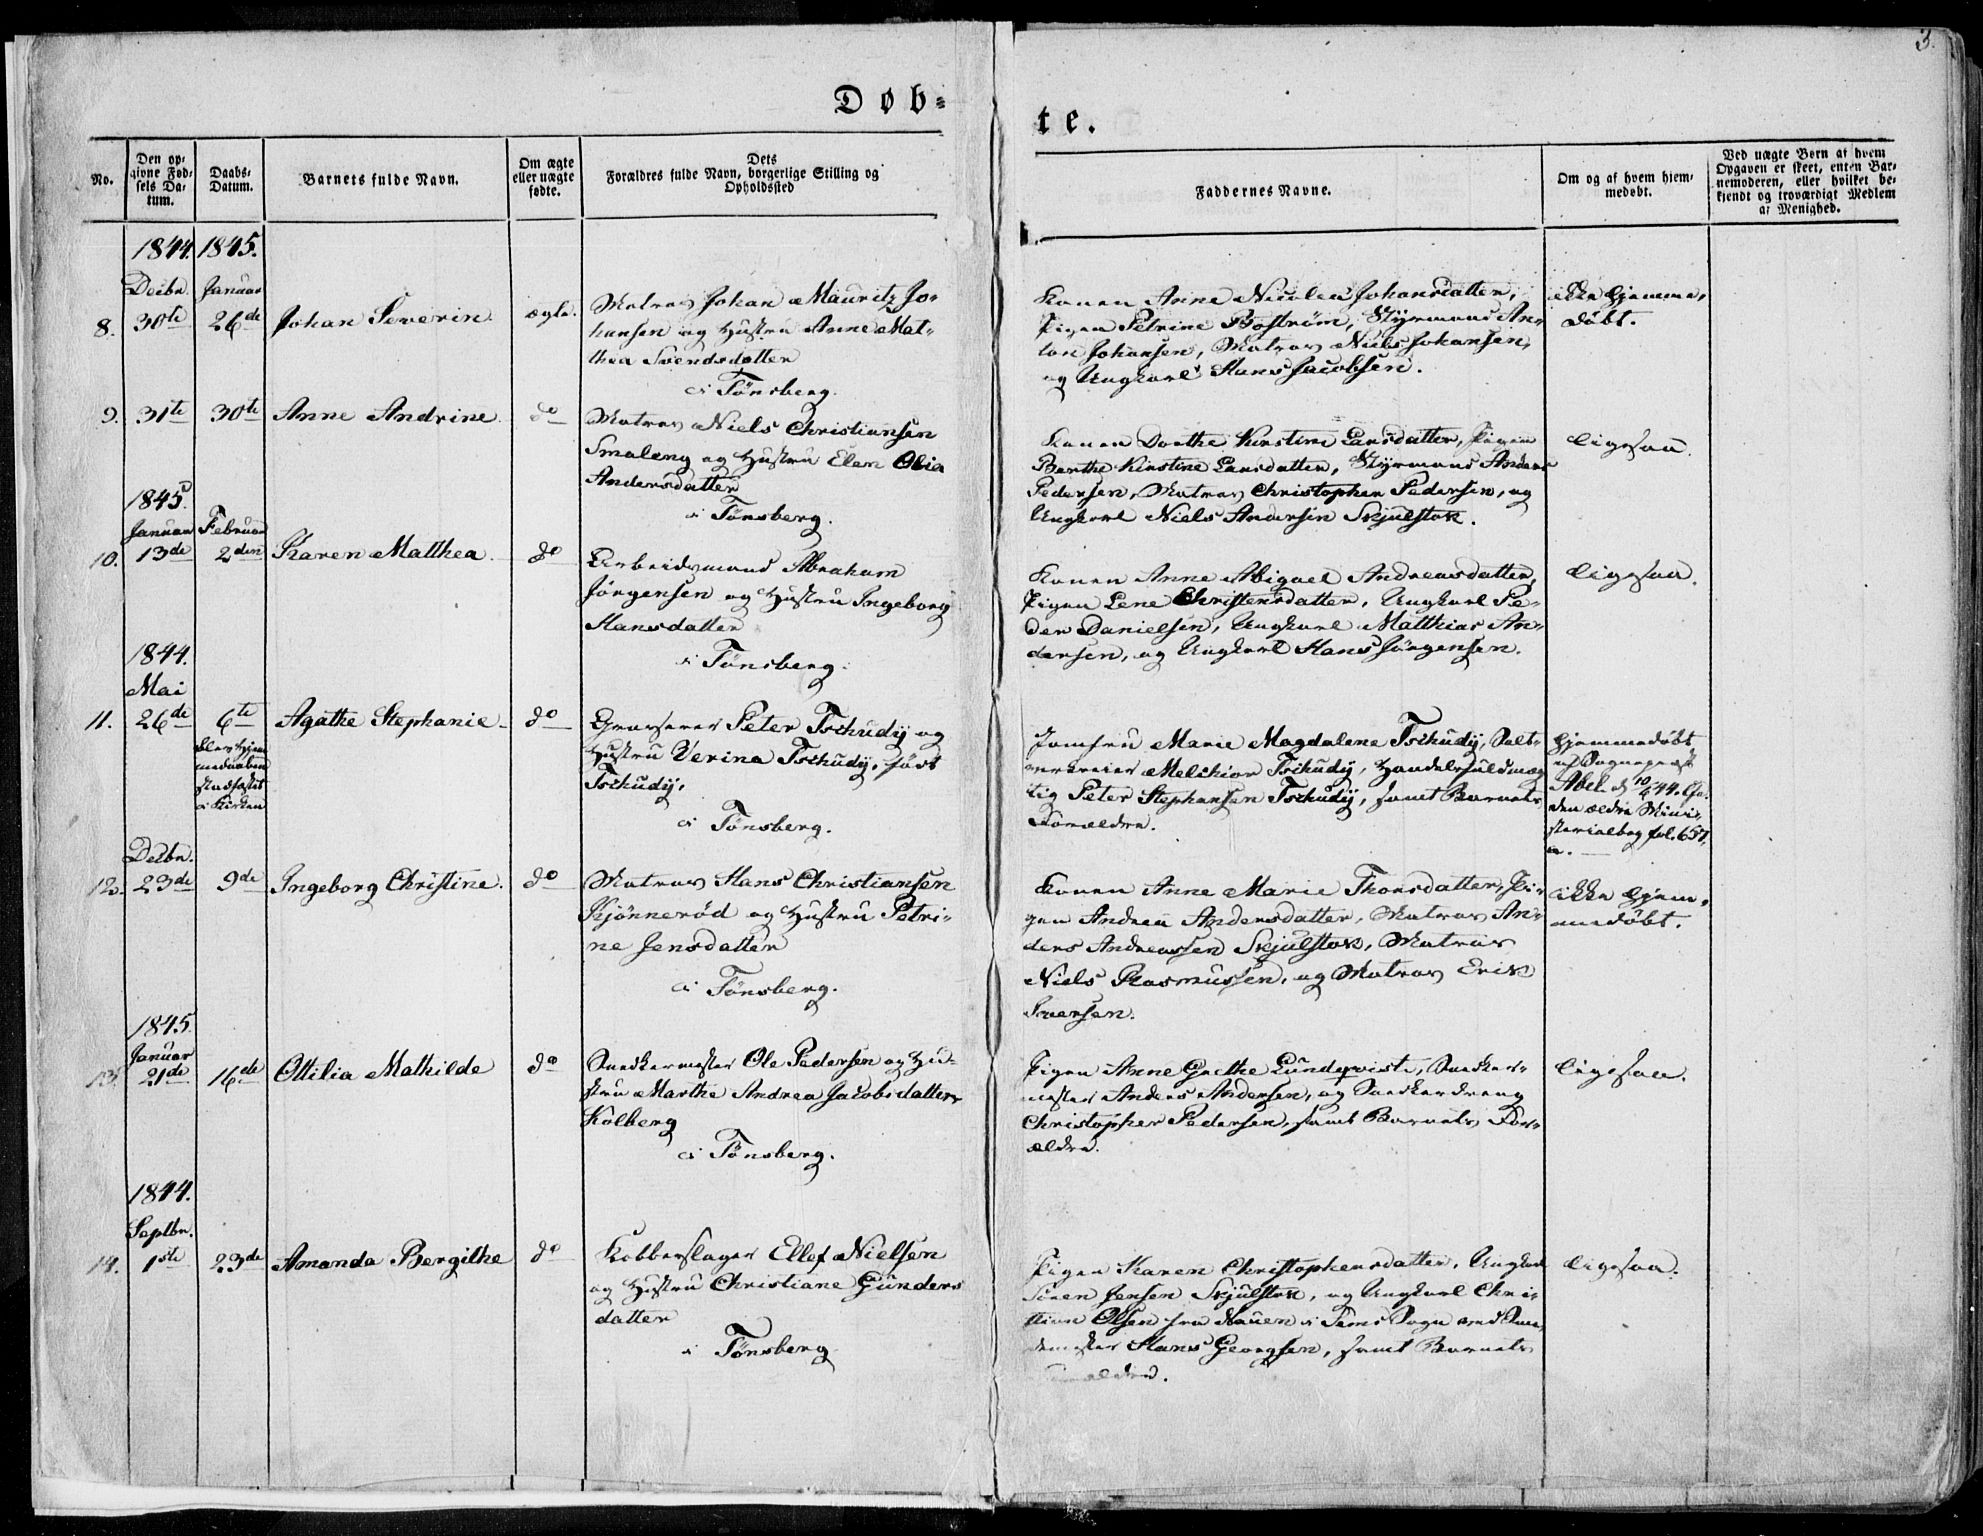 3.
Døb-
te.
No.
Den op-
givne Fød-
sels Da-
tum.
Daabs-
Datum.
Barnets fulde Navn.
Om ægte
eller uægte
fødte.
Dets
Forældres fulde Navn, borgerlige Stilling og
Opholdssted
Faddernes Navne.
Om og af hvem hjem-
medøbt.
Ved uægte Børn af hvem
Opgaven er skeet, enten Bar-
nemoderen, eller hvilket be-
kjendt og troværdigt Medlem
af Menighed.
1844. 1845.
Decbr. Januar
8. 30te 26de Johan Severin ægte.
Matros Johan Mauritz Jo-
hansen og Hustru Anne Mat-
thea Svendsdatter
i Tønsberg.
Konen Anne Nicolea Johansdatter,
Pigen Petrine Boström, Styrmand An-
ton Johansen, Matros Niels Johansen,
og Ungkarl Hans Jacobsen.
ikke hjemme-
døbt.
9. 31te 30te Anne Andrine do
Matros Niels Christiansen
Smaleng og Hustru Elen Olia
Andersdatter
i Tønsberg.
Konen Dorthe Kirstine Larsdatter, Pigen
Berthe Kirstine Larsdatter, Styrmand Anders
Pedersen, Matros Christopher Pedersen, og
Ungkarl Niels Andersen Skjulstok.
ligesaa.
1845
Januar Februar
10. 13de 2den Karen Matthea. do
Arbeidsmand Abraham
Jörgensen og Hustru Ingeborg
Hansdatter
i Tønsberg.
Konen Anne Abigael Andreasdatter,
Pigen Lene Christensdatter, Ungkarl Pe-
der Danielsen, Ungkarl Matthias An-
dersen, og Ungkarl Hans Jørgensen.
ligesaa.
1844.
Mai
11. 26de 6te Agathe Stephanie do
blev Hjem-
medaaben
stadfæstet
i Kirken
Grosserer Peter Tschudy og
Hustru Verina Tschudy, født
Tschudy,
i Tønsberg.
Jomfru Marie Magdalene Tschudy, Salt-
værkseier Melchior Tschudy, Handelsfuldmæg-
tig Peter Stephansen Tschudy, samt Barnets
Forældre.
hjemmedøbt
af Sognepræst
Abel d. 10/6 44. Cfr.
den ældre Mini-
sterialbog fol. 657,
a.
Decbr.
12. 23de 9de Ingeborg Christine. do
Matros Hans Christiansen
Kjønnerød og Hustru Petri-
ne Jensdatter
i Tønsberg.
Konen Anne Marie Thorsdatter, Pi-
gen Andrea Andersdatter, Matros An-
ders Andreassen Skjulstok, Matros
Niels Rasmussen, og Matros Erik
Iversen.
ikke hjem-
medøbt.
1845
Januar
13. 21de 16de Ottilia Mathilde do
Snedkermester Ole Pedersen og Hu-
stru Marthe Andrea Jacobsdatter
Kolberg
i Tønsberg.
Pigen Anne Grethe Lundqvist, Snedker-
mester Anders Andersen, og Snedkerdreng
Christopher Pedersen, samt Barnets For-
ældre.
ligesaa.
1844.
Septbr.
14. 1ste 23de Amanda Bergithe do
Kobberslager Ellef Nielsen
og Hustru Christiane Gunders
datter
i Tønsberg
Pigen Karen Christophersdatter, Ungkarl
Sören Jensen Skjulstok, og Ungkarl Chri-
stian Olsen fra Nauen i Sems Sogn
Hans Georgsen, samt Barnets
Forældre.
ligesaa.